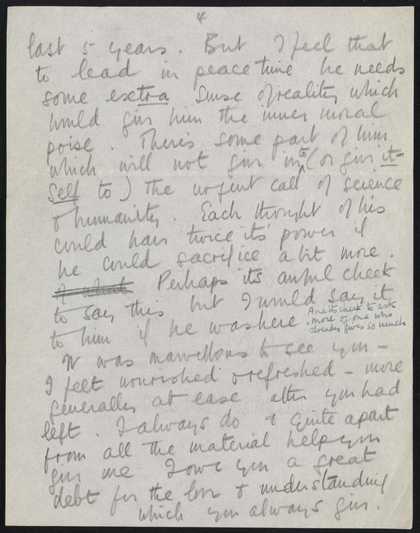 4
last 5 years. But I feel that
to lead in peace time he needs
some extra sense of reality which
would give him the inner moral
poise. There's some part of him
which will not give in to (or give it-
self to) the urgent call of science
& humanity. Each thought of his
could have twice its power if
he could sacrifice a bit more.
Perhaps its awful cheek
to say this but I would say it
to him if he was here. And its cheek to ask
more of one who
already gives so much
It was marvellous to see you –
I felt nourished & refreshed – more
generally at ease after you had
left. I always do & quite apart
from all the material help you
give me I owe you a great
debt for the love & understanding
which you always give.